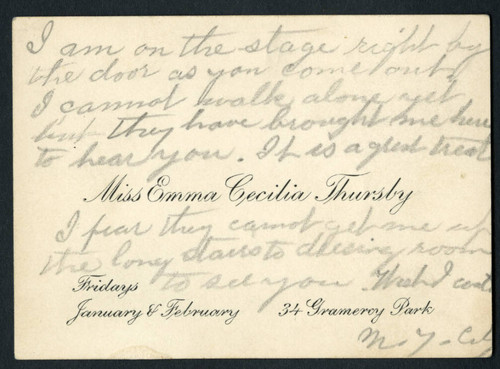 I am on the stage right by
the door as you come out.
I cannot walk alone yet
but they have brought me here
to hear you. It is a great treat
Miss Emma Cecilia Thursby
I fear they cannot get me up
the long stairs to dressing room
to see you. Wish I could
Fridays
January & February 34 Gramercy Park
N. Y. City